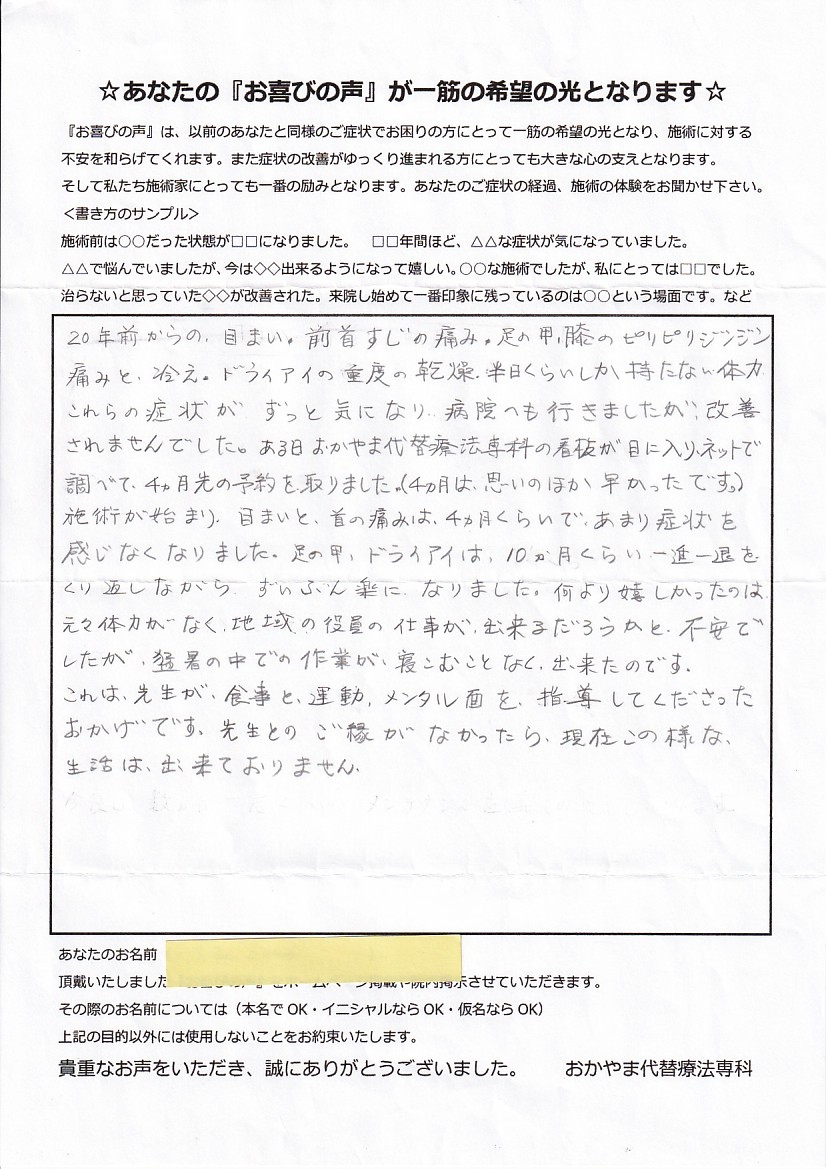 ☆あなたの『お喜びの声』が一筋の希望の光となります☆
『お喜びの声』は、以前のあなたと同様のご症状でお困りの方にとって一筋の希望の光となり、施術に対する
不安を和らげてくれます。また症状の改善がゆっくり進まれる方にとっても大きな心の支えとなります。
そして私たち施術家にとっても一番の励みとなります。あなたのご症状の経過、施術の体験をお聞かせ下さい。
＜書き方のサンプル＞
施術前は○○だった状態が□□になりました。　□□年間ほど、△△な症状が気になっていました。
△△で悩んでいましたが、今は◇◇出来るようになって嬉しい。○○な施術でしたが、私にとっては□□でした。
治らないと思っていた◇◇が改善された。来院し始めて一番印象に残っているのは○○という場面です。など
20年前からの、目まい。前首すじの痛み。足の甲、膝のピリピリジンジン
痛みと、冷え。ドライアイの重度の乾燥、半日くらいしか持たない体力
これらの症状が ずっと気になり、病院へも行きましたが、改善
されませんでした。ある日おかやま代替療法専科の看板が目に入り、ネットで
調べて、4ヵ月先の予約を取りました。(4ヵ月は、思いのほか早かったです。)
施術が始まり、目まいと、首の痛みは、4ヵ月くらいで、あまり症状を
感じなくなりました。足の甲、ドライアイは、10か月くらい一進一退を
くり返しながら、ずいぶん楽になりました。何より嬉しかったのは
元々体力がなく、地域の役員の仕事が、出来るだろうかと、不安で
したが、猛暑の中での作業が、寝こむことなく、出来たのです。
これは、先生が、食事と、運動、メンタル面を、指導してくださった
おかげです。先生とのご縁がなかったら、現在この様な、
生活は、出来ておりません。
あなたのお名前
頂戴いたしました『お喜びの声』をホームページ掲載や院内掲示させていただきます。
その際のお名前については（本名で OK・イニシャルなら OK・仮名なら OK）
上記の目的以外には使用しないことをお約束いたします。
貴重なお声をいただき、誠にありがとうございました。　　おかやま代替療法専科